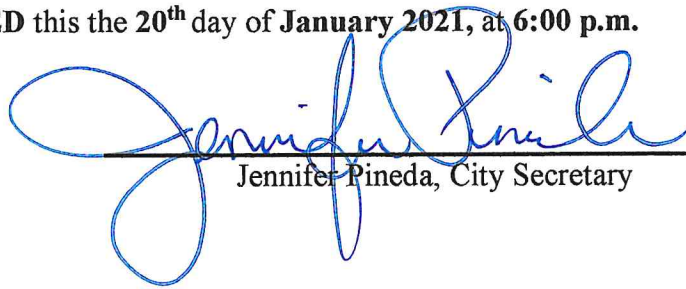 ED this the 20th day of January 2021, at 6:00 p.m.
Jennifer Pineda
Jennifer Pineda, City Secretary